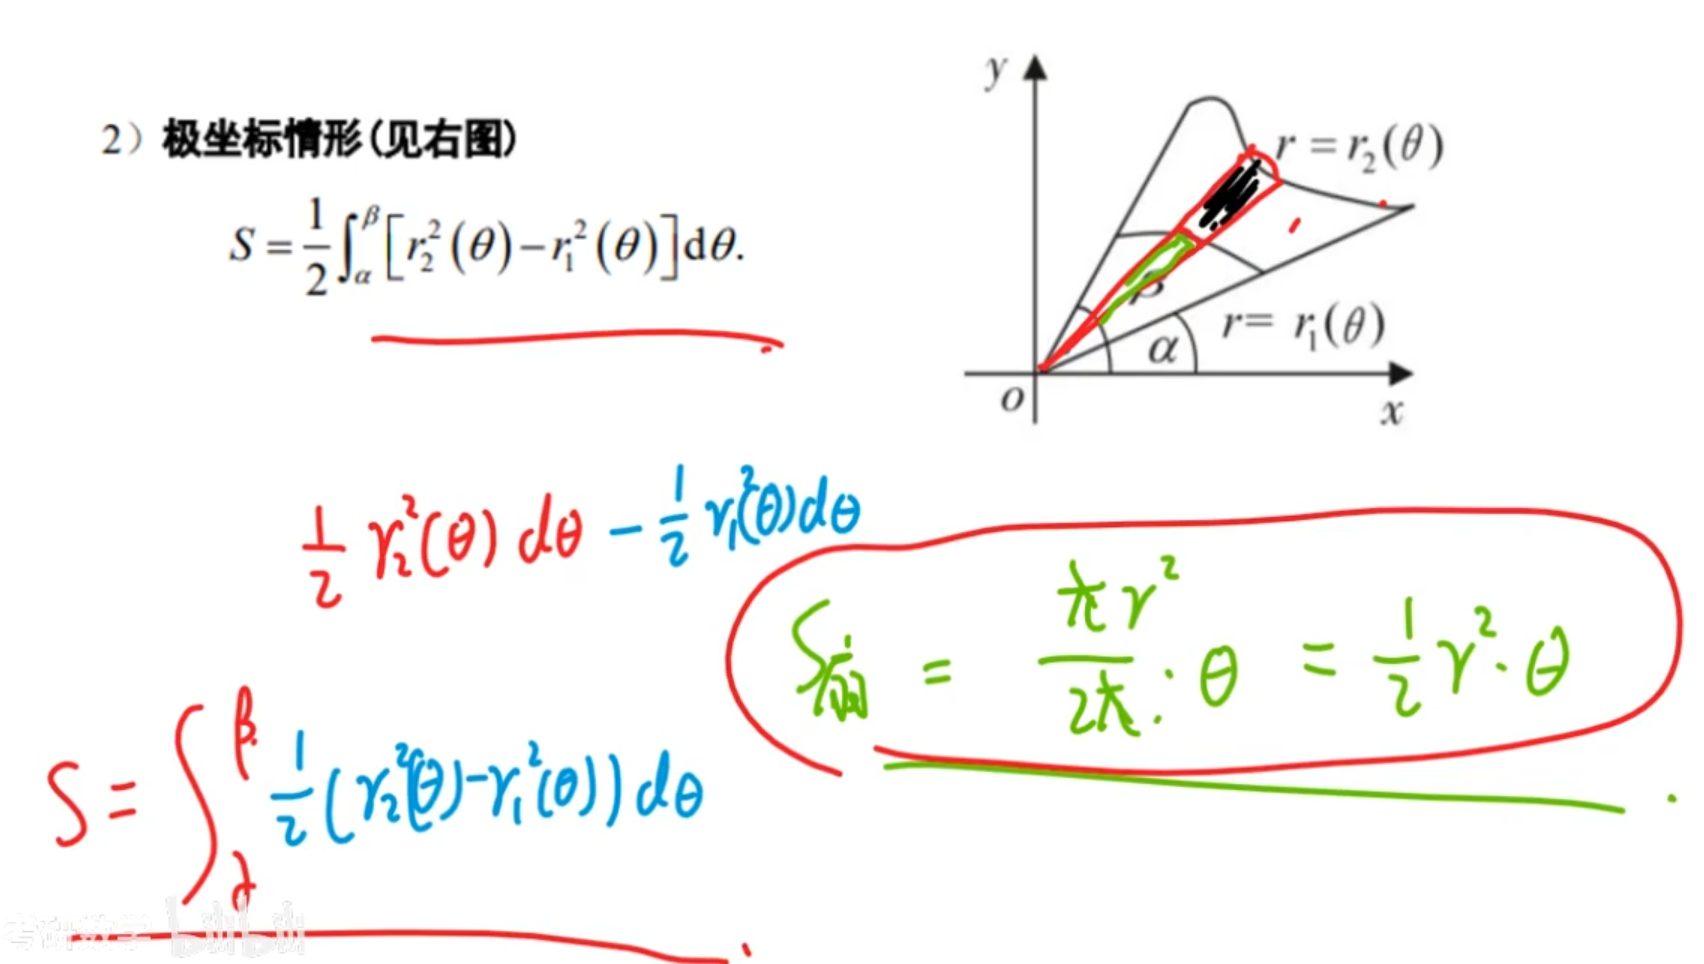 2）极坐标情形(见右图)
S = \frac{1}{2} \int_{α}^{β} [r_2^2(θ) - r_1^2(θ)]dθ.
y
r = r_2(θ)
β
α
r = r_1(θ)
O
x
\frac{1}{2} r_2^2(θ) dθ - \frac{1}{2} r_1^2(θ) dθ
S扇 = \frac{πr^2}{2π} · θ = \frac{1}{2} r^2 · θ
S = \int_{α}^{β} \frac{1}{2} (r_2^2(θ) - r_1^2(θ)) dθ
考研数学 bilibili